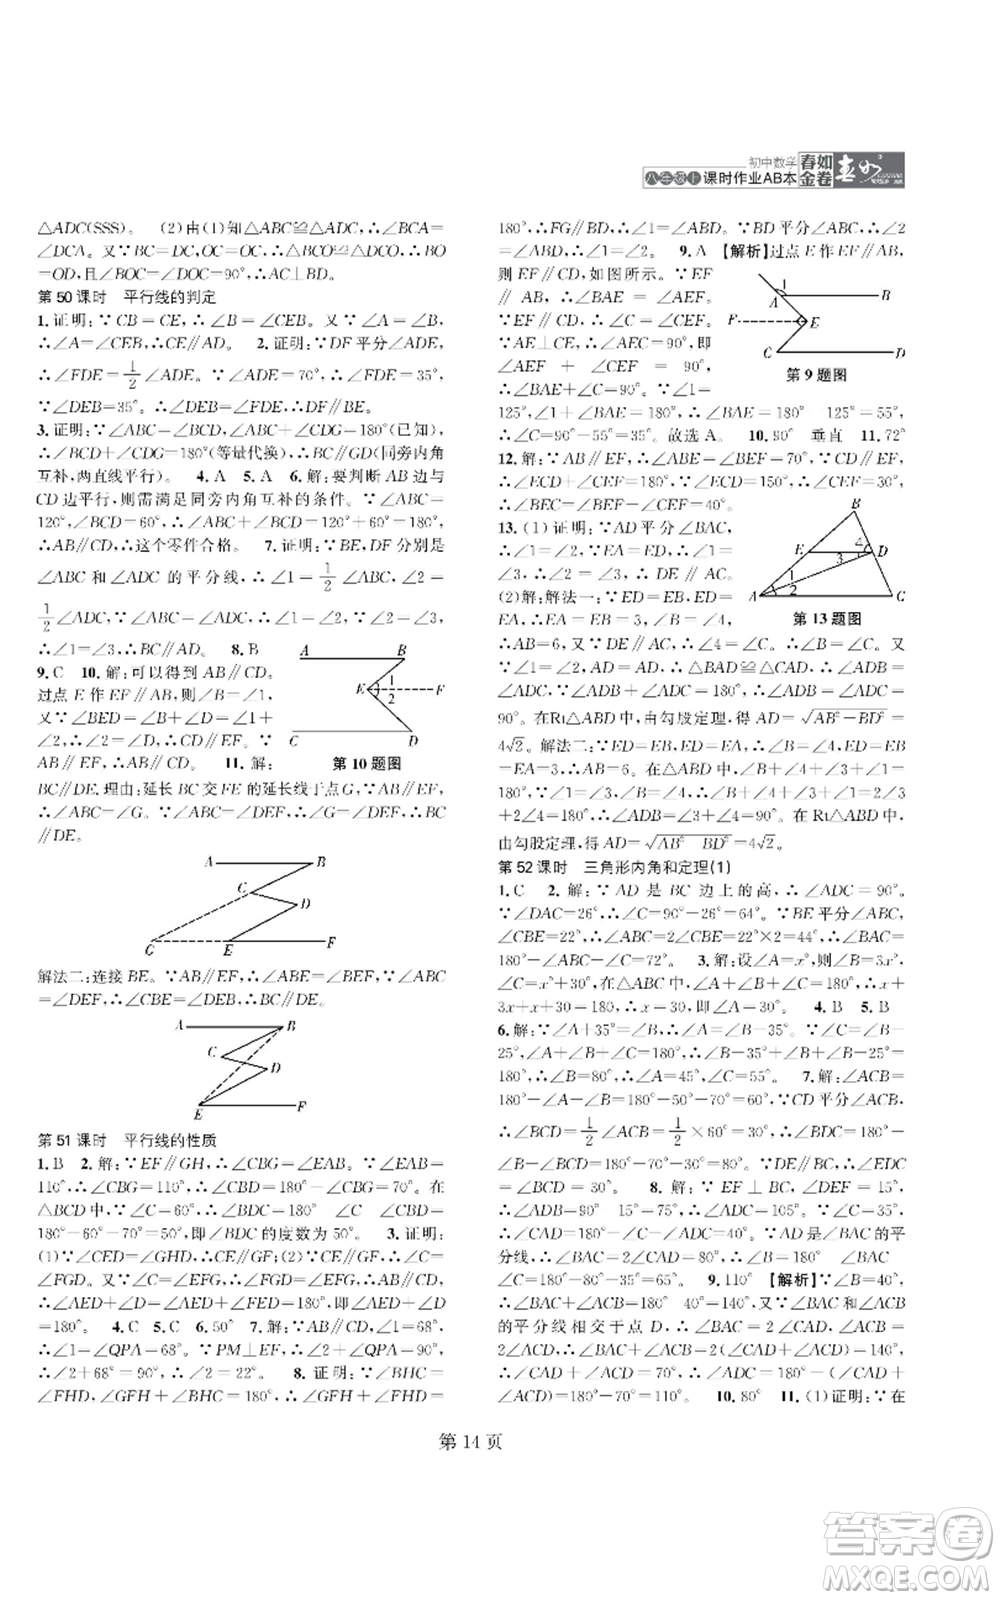 初中数学
八年级上 课时作业AB本
春如金卷
△ADC(SSS). (2)由(1)知△ABC≌△ADC,∴∠BCA=
∠DCA. 又∵BC=DC,OC=OC,∴△BCO≌△DCO,∴BO
=OD,且∠BOC=∠DOC=90°,∴AC⊥BD.
第50课时 平行线的判定
1. 证明:∵CB=CE,∴∠B=∠CEB. 又∵∠A=∠B,
∴∠A=∠CEB,∴CE∥AD. 2. 证明:∵DF平分∠ADE,
∴∠FDE=1/2∠ADE. ∵∠ADE=70°,∴∠FDE=35°.
∵∠DEB=35°. ∴∠DEB=∠FDE,∴DF∥BE.
3. 证明:∵∠ABC=∠BCD,∠ABC+∠CDG=180°(已知),
∴∠BCD+∠CDG=180°(等量代换),∴BC∥GD(同旁内角
互补,两直线平行). 4. A 5. A 6. 解:要判断AB边与
CD边平行,则需满足同旁内角互补的条件. ∵∠ABC=
120°,∠BCD=60°,∴∠ABC+∠BCD=120°+60°=180°,
∴AB∥CD,∴这个零件合格. 7. 证明:∵BE,DF分别是
∠ABC和∠ADC的平分线,∴∠1=1/2∠ABC,∠2=
1/2∠ADC,∵∠ABC=∠ADC,∴∠1=∠2,∵∠2=∠3,
∴∠1=∠3,∴BC∥AD. 8. B
9. C 10. 解:可以得到AB∥CD.
过点E作EF∥AB,∴∠B=∠1,
又∵∠BED=∠B+∠D,∴∠2
=∠D,∴CD∥EF. ∵
AB∥EF,∴AB∥CD. 11. 解:
A B
E 1 2 F
C D
第10题图
BC∥DE. 理由:延长BC交FE的延长线于点G,∵AB∥EF,
∴∠ABC=∠G. 又∵∠ABC=∠DEF,∴∠G=∠DEF,∴BC
∥DE.
A B
C D
G E F
解法二:连接BE. ∵AB∥EF,∴∠ABE=∠BEF. ∵∠ABC
=∠DEF,∴∠CBE=∠DEB,∴BC∥DE.
A B
C D
E F
第51课时 平行线的性质
1. B 2. 解:∵EF∥GH,∴∠CBG=∠EAB. ∵∠EAB=
110°,∴∠CBG=110°,∴∠CBD=180°-∠CBG=70°. 在
△BCD中,∵∠C=60°,∴∠BDC=180°-∠C-∠CBD=
180°-60°-70°=50°,即∠BDC的度数为50°. 3. 证明:
(1)∵∠CED=∠GHD,∴CE∥GF;(2)∵CE∥GF,∴∠C=
∠FGD. 又∵∠C=∠EFG,∴∠EFG=∠FGD,∴AB∥CD,
∴∠AED+∠D=180°,∴∠AED+∠FED=180°,即∠AED+∠D
=180°. 4. C 5. C 6. 50° 7. 解:∵AB∥CD,∠1=68°,
∴∠1=∠QPA=68°. ∵PM⊥EF,∴∠2+∠QPA=90°,
∴∠2+68°=90°,∴∠2=22°. 8. 证明:∵∠BHC=
∠FHD,∠GFH+∠BHC=180°,∴∠GFH+∠FHD=
180°,∴FG∥BD,∴∠1=∠ABD. ∵BD平分∠ABC,∴∠2
=∠ABD,∴∠1=∠2. 9. A 【解析】过点E作EF∥AB,
则EF∥CD,如图所示. ∵EF
∥AB,∴∠BAE=∠AEF.
∵EF∥CD,∴∠C=∠CEF.
∵AE⊥CE,∴∠AEC=90°,即
∠AEF+∠CEF=90°,
∴∠BAE+∠C=90°. ∵∠1=
1
A B
F E
C D
第9题图
125°,∠1+∠BAE=180°,∴∠BAE=180°-125°=55°,
∴∠C=90°-55°=35°. 故选A. 10. 90° 垂直 11. 72°
12. 解:∵AB∥EF,∴∠ABE=∠BEF=70°. ∵CD∥EF,
∴∠ECD+∠CEF=180°,∵∠ECD=150°,∴∠CEF=30°,
∴∠BEC=∠BEF-∠CEF=40°.
13. (1)证明:∵AD平分∠BAC,
∴∠1=∠2. ∵EA=ED,∴∠1=
∠3,∴∠2=∠3,∴DE∥AC.
(2)解:解法一:∵ED=EB=
EA,∴∠1=∠3,∠B=∠4,
B
E 4 D
3
1
2
A C
第13题图
∴AB=6,又∵DE∥AC,∴∠4=∠C,∴∠B=∠C. 又
∵∠1=∠2,AD=AD,∴△BAD≌△CAD,∴∠ADB=
∠ADC. ∵∠ADB+∠ADC=180°,∴∠ADB=∠ADC=
90°. 在Rt△ABD中,由勾股定理,得AD=√(AB²-BD²)=
4√2. 解法二:∵ED=EB,ED=EA=3,∴∠B=∠4,AB=
EB+EA=6. 在△ADB中,∠B+∠4+∠3+∠1=
180°,∵∠B=∠4,∠1=∠3,∴∠B+∠4+∠1+∠3=2∠3
+2∠4=180°,∴∠3+∠4=90°. 在Rt△ABD中,BD=2,
由勾股定理,得AD=√(AB²-BD²)=4√2.
第52课时 三角形内角和定理(1)
1. C 2. 解:∵AD是BC边上的高,∴∠ADC=90°.
∵∠DAC=26°,∴∠C=90°-26°=64°. ∵BE平分∠ABC,
∠CBE=22°,∴∠ABC=2∠CBE=22°×2=44°,∴∠BAC=
180°-∠ABC-∠C=72°. 3. 解:设∠A=x°,则∠B=3x°,
∠C=x°+30°. ∵在△ABC中,∠A+∠B+∠C=180°,∴x+
3x+x+30=180,∴x=30,即∠A=30°. 4. B 5. B
6. 解:∵∠A+35°=∠B,∴∠A=∠B-35°. ∵∠C=∠B-
25°,∠A+∠B+∠C=180°,∴∠B-35°+∠B+∠B-25°
=180°,∴∠B=80°,∴∠A=45°,∠C=55°. 7. 解:∠ACB=
180°-∠A-∠B=180°-50°-70°=60°,∵CD平分∠ACB,
∴∠BCD=1/2∠ACB=1/2×60°=30°,∴∠BDC=180°-
∠B-∠BCD=180°-70°-30°=80°,∵DE∥BC,∴∠EDC
=∠BCD=30°. 8. 解:∵EF⊥BC,∠DEF=15°,
∴∠ADB=90°-15°=75°. ∵∠C=35°,
∴∠CAD=∠ADB-∠C=75°-35°=40°. ∵AD是∠BAC的平
分线,∴∠BAC=2∠CAD=80°,∴∠B=180°-∠BAC-
∠C=180°-80°-35°=65°. 9. 110° 【解析】∵∠B=40°,
∴∠BAC+∠ACB=180°-40°=140°. 又∵∠BAC与∠ACB
的平分线相交于点D,∴∠CAD+∠ACD=
70°,∴∠ADC=180°-(∠CAD+∠ACD)
=180°-70°=110°. 10. 80° 11. (1)证明:∵在
第14页
答案圈